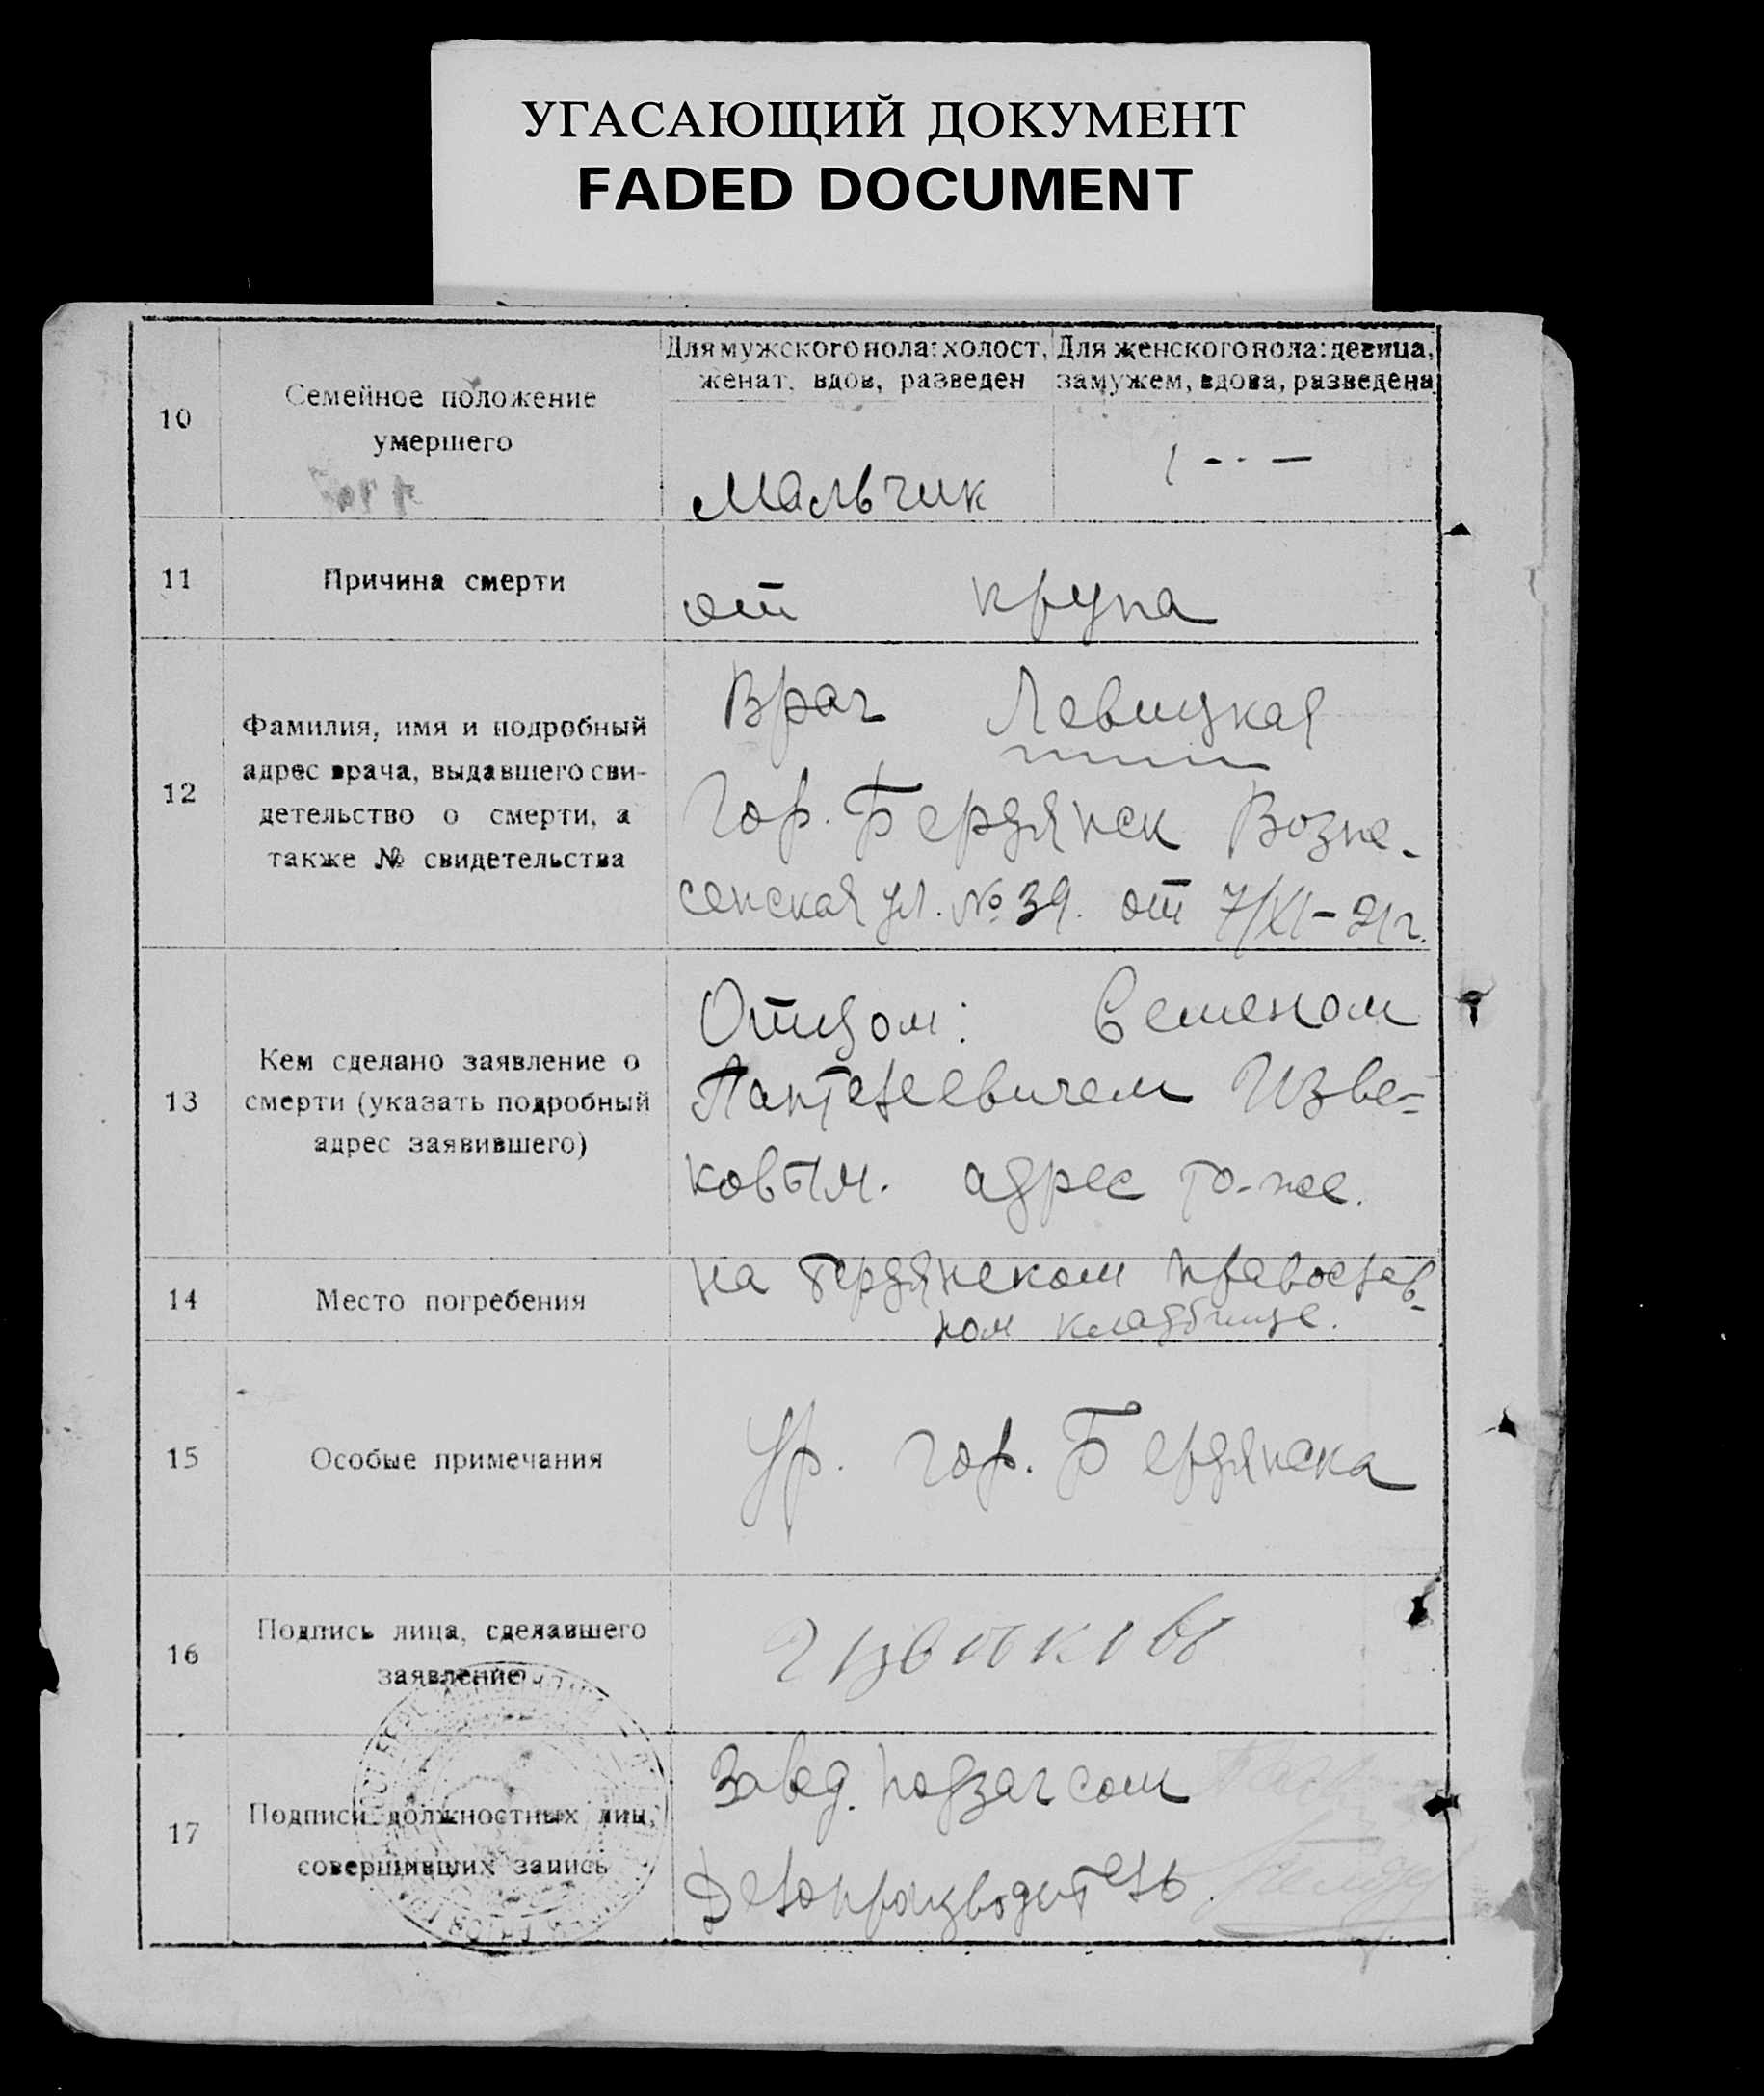 УГАСАЮЩИЙ ДОКУМЕНТ
FADED DOCUMENT
10
Семейное положение
умершего
Для мужского пола: холост,
женат, вдов, разведен
Для женского пола: девица,
замужем, вдова, разведена
Мальчик
11
Причина смерти
от крупа
12
Фамилия, имя и подробный
адрес врача, выдавшего сви-
детельство о смерти, а
также № свидетельства
Врач Левицкая
Гор. Бердянск Возне-
сенская ул. № 39. от 7/XI-21г.
13
Кем сделано заявление о
смерти (указать подробный
адрес заявившего)
Отцом: Семеном
Пантелеевичем Изве-
ковым. адрес то-же.
14
Место погребения
на бердянском православ-
ном кладбище.
15
Особые примечания
Ур. гор. Бердянска
16
Подпись лица, сделавшего
заявление
17
Подписи должностных лиц,
совершивших запись
Завед. подзагсом
Делопроизводитель.